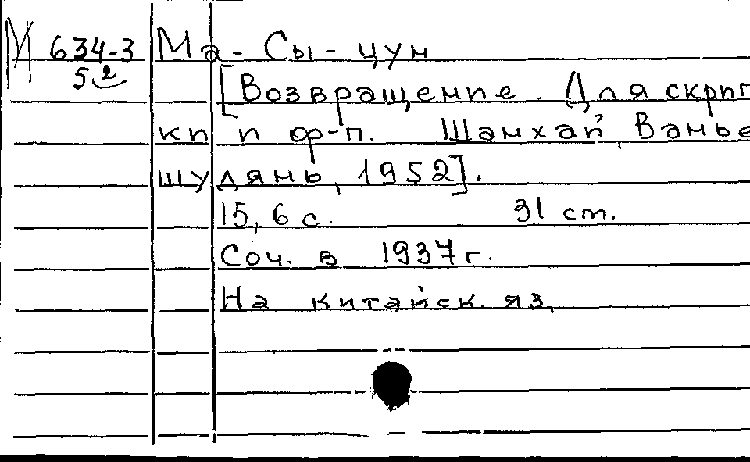 М 634-3 Ма-Сы-цун
5 2
[Возвращение. Для скрип
ки и ф-п. Шанхай, Ванье
шудянь, 1952].
15, 6 с. 31 cm.
Соч. в 1937 г.
На китайск. яз.